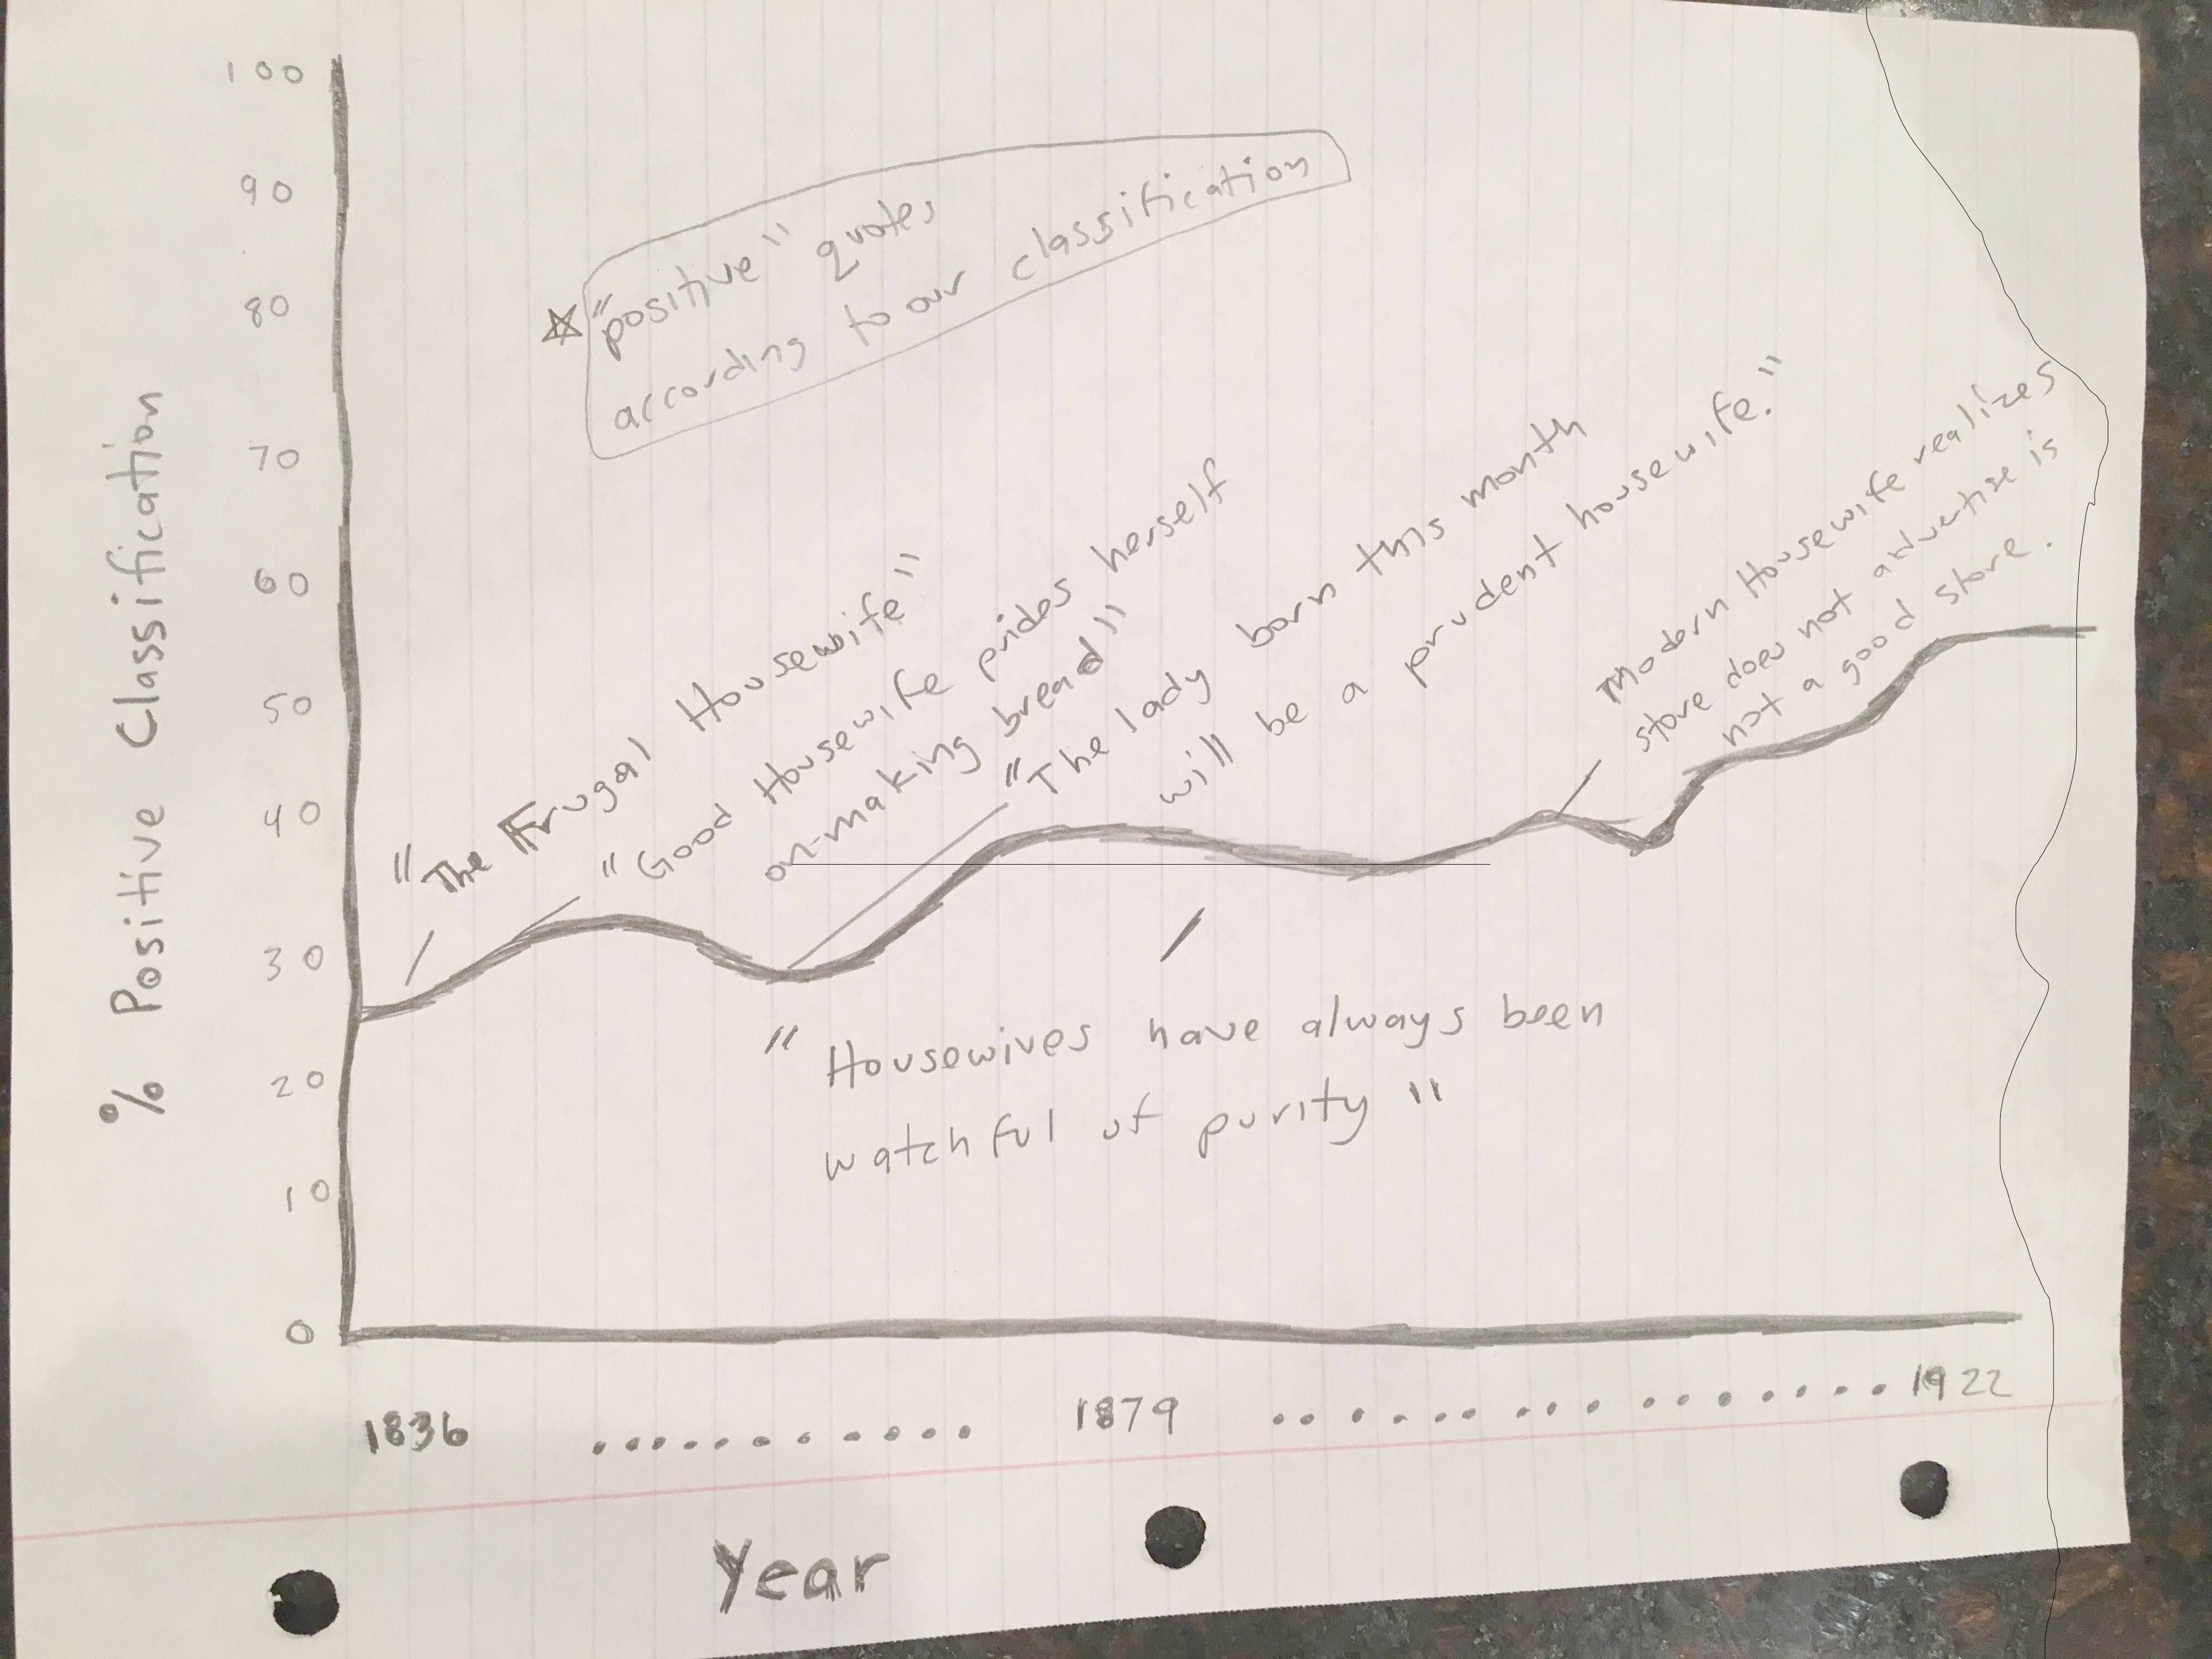 % Positive Classification
100
90
80
70
60
50
40
30
20
10
0
☆ "positive" quotes
according to our classification
"The Frugal Housewife"
"Good Housewife prides herself
on-making bread"
"The lady born this month
will be a prudent housewife."
Modern Housewife realizes
store does not advertise is
not a good store.
"Housewives have always been
watchful of purity"
1836 ........... 1879 ............... 1922
Year